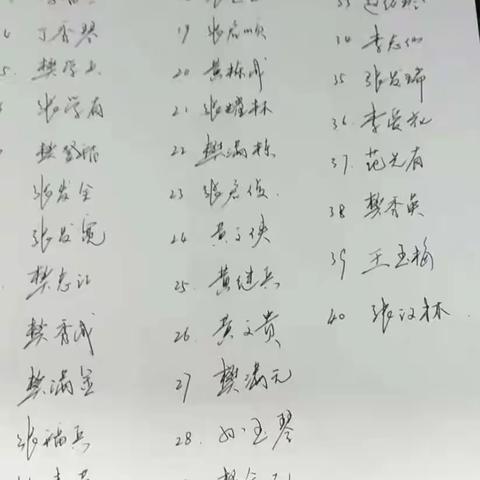 丁香琴
樊学文
张学有
樊登鹏
张发金
张发宽
樊志江
樊香成
樊满金
张福兵
19 张启顺
20 黄栋成
21 张耀林
22 樊满栋
23 张启俊
24 黄文侠
25 黄继兵
26 黄文贵
27 樊满元
28 孙玉琴
34 李志仙
35 张发瑞
36 李爱红
37 范光有
38 樊香英
39 王玉梅
40 张汉林